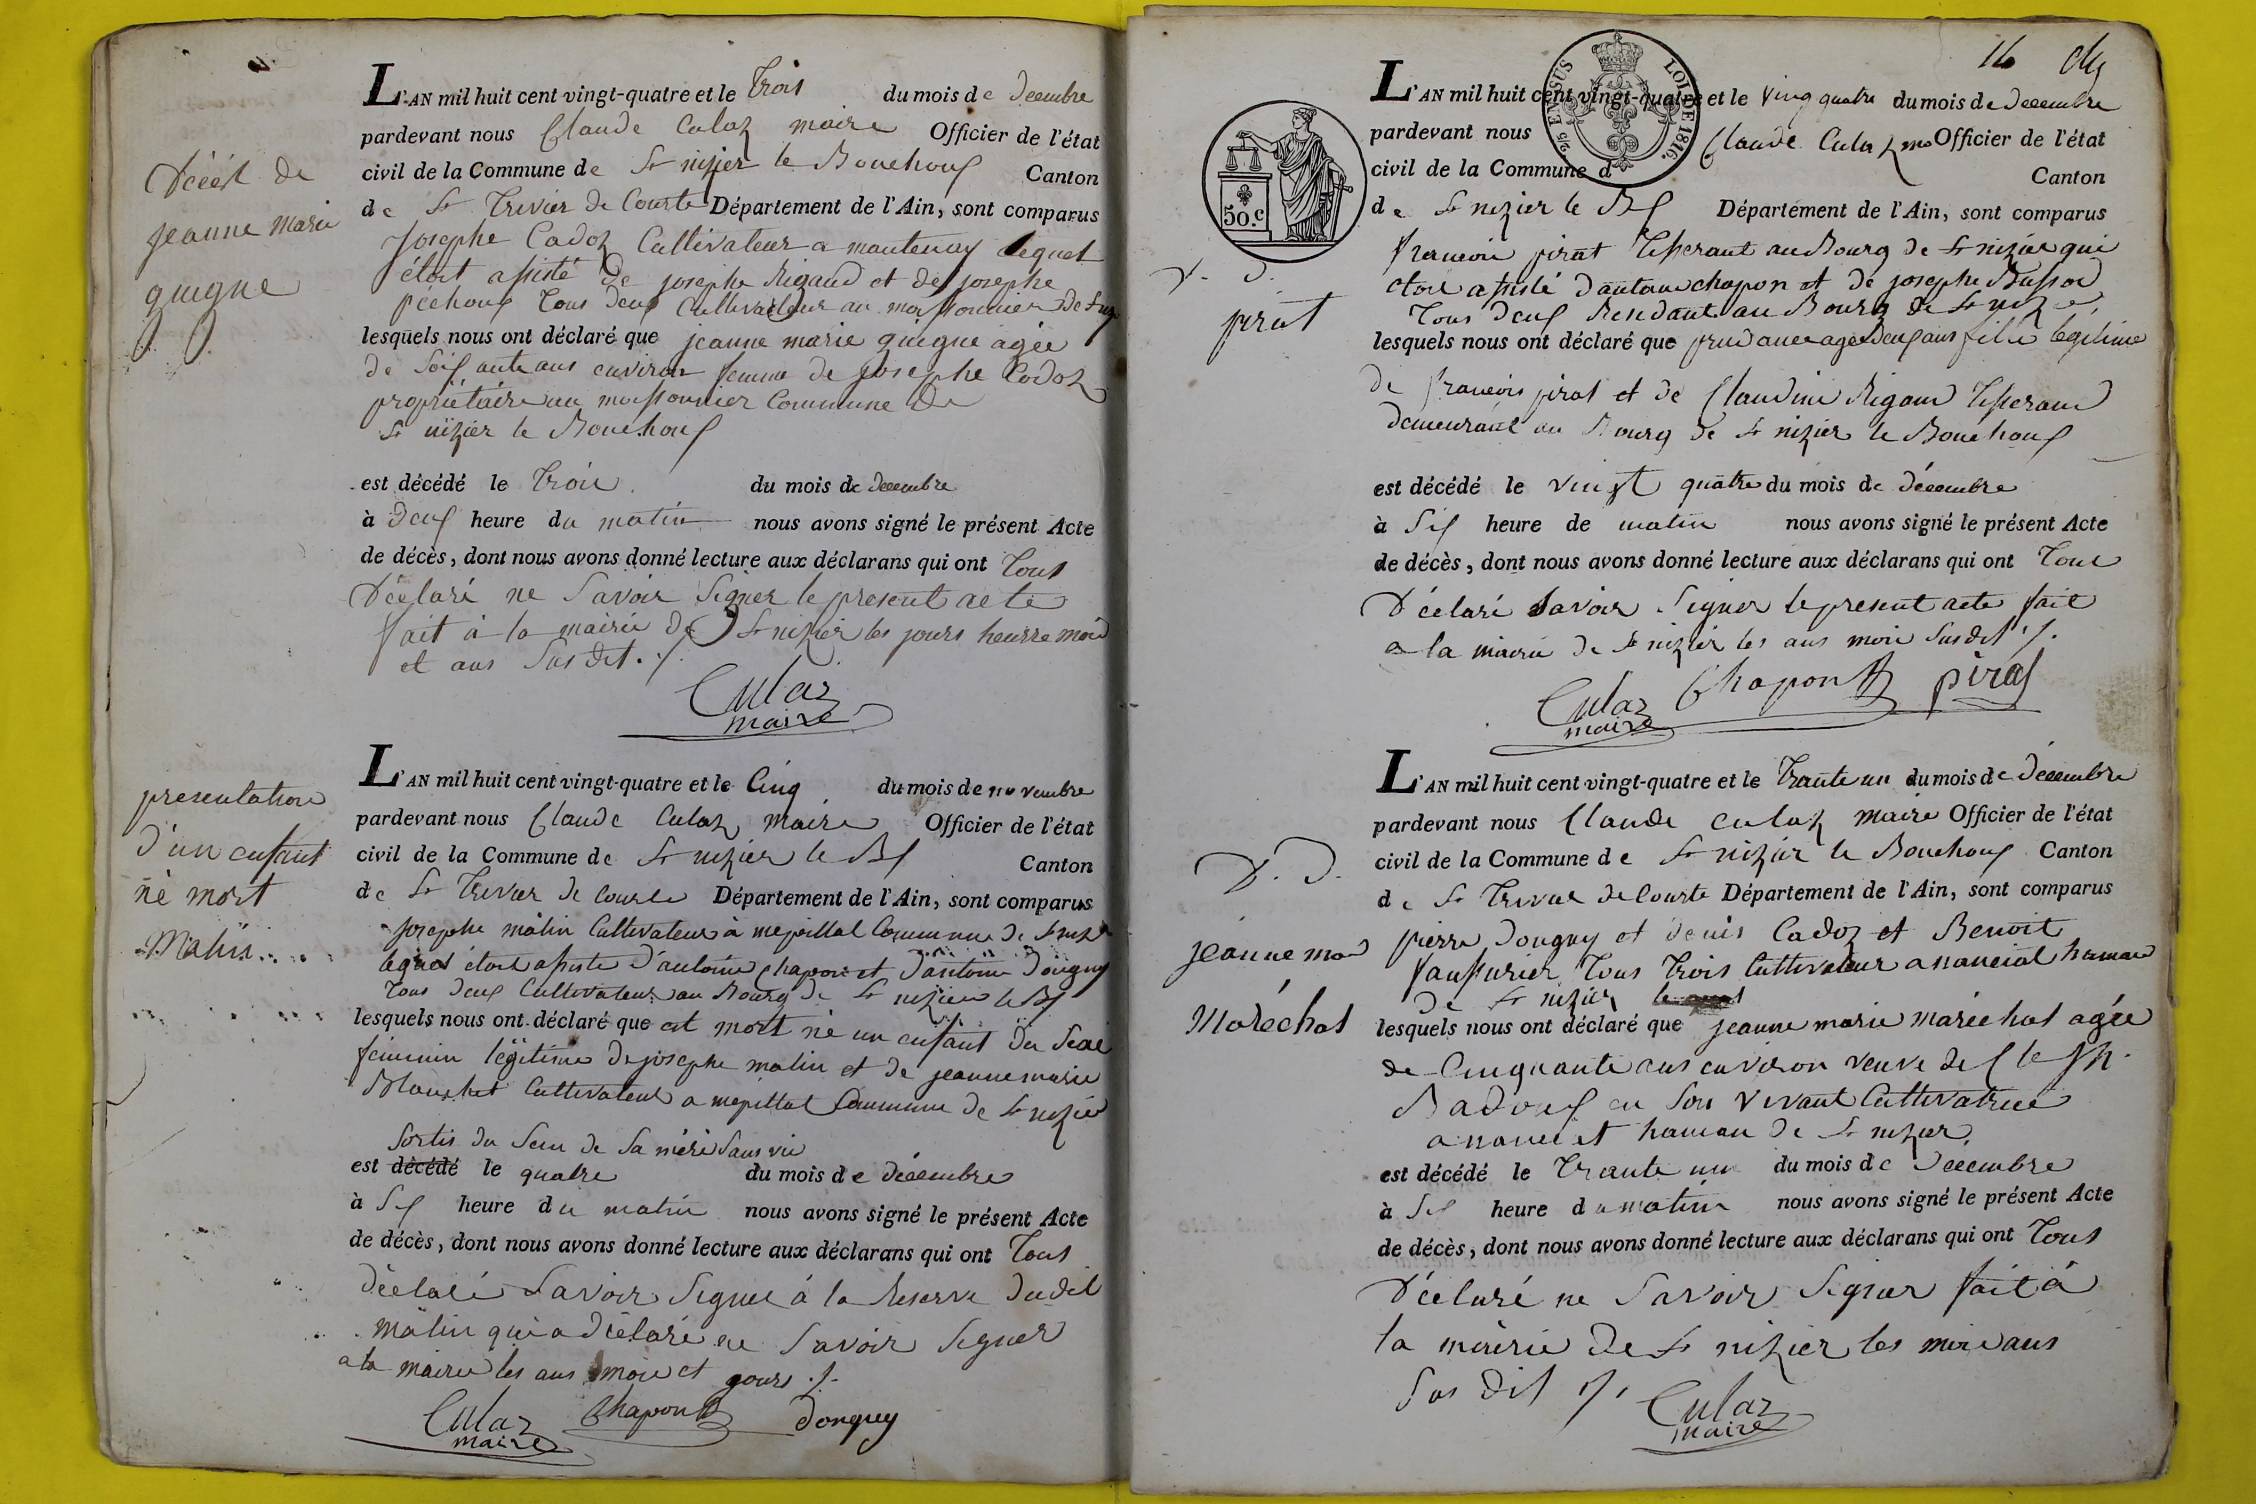 Décés de
jeanne marie
guigue
L'AN mil huit cent vingt-quatre et le Trois du mois de Decembre
pardevant nous Claude Culaz maire Officier de l'état
civil de la Commune de St nizier le Bouchoux Canton
de St Trivier de Courte Département de l'Ain, sont comparus
Josephe Cadoz Cultivateur a mantenay lequel
étoit assisté de josephe Rigaud et de josephe
péchoux Tous deux Cultivateur au moissonnier de St niz
lesquels nous ont déclaré que jeanne marie guigue agée
de Soixante ans environ femme de Josephe Cadoz
propriétaire au moissonnier Commune de
St nizier le Bouchoux
est décédé le Trois du mois de decembre
à deux heure du matin nous avons signé le présent Acte
de décès, dont nous avons donné lecture aux déclarans qui ont Tous
Déclaré ne Savoir Signer le present acte
fait à la mairie de St nizier les jours heurre mois
et ans Susdit ./.
Culaz
maire
presentation
d'un enfant
né mort
Matin
L'AN mil huit cent vingt-quatre et le Cinq du mois de novembre
pardevant nous Claude Culaz maire Officier de l'état
civil de la Commune de St nizier le Bx Canton
de St Trivier de Courte Département de l'Ain, sont comparus
josephe mâlin Cultivateur à mepillat Commune de St niz
lequel étoit assiste d'antoine chapon et d'antoine donguy
Tous deux Cultivateur au Bourg de St nizier le Bx
lesquels nous ont déclaré que est mort né un enfant du Sexe
feminin légitime de josephe malin et de jeanne marie
Blanchet Cultivateur a mepillat Commune de St nizier
Sortis du Sein de Sa mère Sans vie
est décédé le quatre du mois de décembre
à Six heure du matin nous avons signé le présent Acte
de décès, dont nous avons donné lecture aux déclarans qui ont Tous
déclaré Savoir Signer à la Reserve dudit
mâlin qui a déclaré ne Savoir Signer
a la mairie les ans mois et jours ./.
Culaz Chapon donguy
maire
16
5/2 EN SUS LOI DE 1816.
50.c
D. D.
pirat
L'AN mil huit cent vingt-quatre et le vingquatre du mois de Decembre
pardevant nous Claude Culaz m Officier de l'état
civil de la Commune d Canton
de St nizier le Bx Département de l'Ain, sont comparus
francois pirat Tisserant au Bourg de St nizier qui
etoit assisté d'antoine chapon et de josephe Bussod
Tous deux Residant au Bourg de St nizé
lesquels nous ont déclaré que prudance agée deux ans fille legitime
de francois pirat et de Claudine Rigaud Tisserand
demeurant au Bourg de St nizier le Bouchoux
est décédé le vingt quatre du mois de décembre
à Six heure de matin nous avons signé le présent Acte
de décès, dont nous avons donné lecture aux déclarans qui ont Tous
Déclaré Savoir Signer le present acte fait
a la mairie de St nizier les ans mois Susdit ./.
Culaz Chapon pirat
maire
D. D.
jeanne ma
Maréchal
L'AN mil huit cent vingt-quatre et le Trante un du mois de Décembre
pardevant nous Claude Culaz maire Officier de l'état
civil de la Commune de St nizier le Bouchoux Canton
de St Trivier de Courte Département de l'Ain, sont comparus
pierre donguy et denis Cadoz et Benoit
faussurier Tous Trois Cultivateur a nanciat hamau
De St nizier
lesquels nous ont déclaré que jeanne marie maréchal agée
de Cinquante ans environ veuve de Cle jh.
Badoux en Son Vivant Cultivatrice
a nanciat hamau de St nizier.
est décédé le Trante un du mois de Decembre
à Six heure du matin nous avons signé le présent Acte
de décès, dont nous avons donné lecture aux déclarans qui ont Tous
Déclaré ne Savoir Signer fait à
la mairie de St nizier les mois ans
Sus dit ./.
Culaz
maire